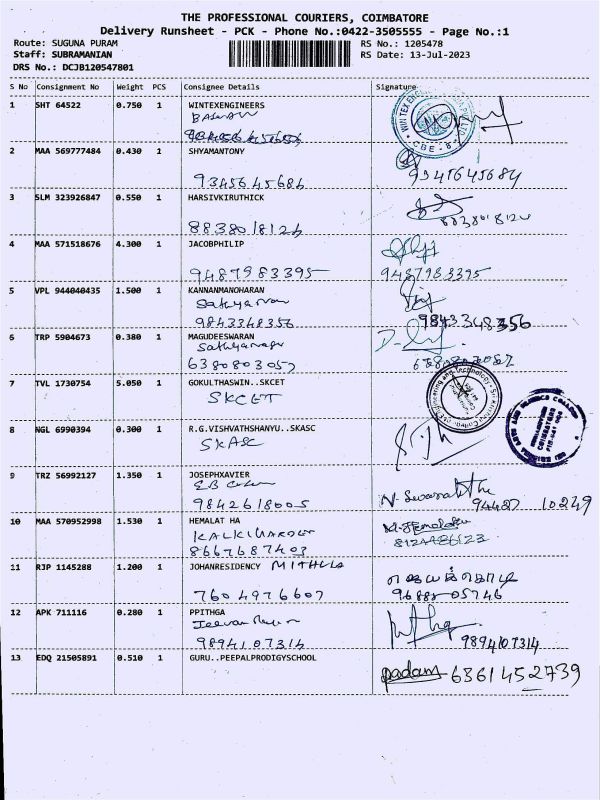 THE PROFESSIONAL COURIERS, COIMBATORE
Delivery Runsheet - PCK - Phone No.:0422-3505555 - Page No.:1
Route: SUGUNA PURAM RS No.: 1205478
Staff: SUBRAMANIAN RS Date: 13-Jul-2023
DRS No.: DCJB120547801
S No Consignment No Weight PCS Consignee Details Signature
1 SHT 64522 0.750 1 WINTEXENGINEERS
CBE - 8
2 MAA 569777484 0.430 1 SHYAMANTONY
9345645684 9345645684
3 SLM 323926847 0.550 1 HARSIVKIRUTHICK
8838018124 8838018124
4 MAA 571518676 4.300 1 JACOBPHILIP
9487983395 9487983395
5 VPL 944040435 1.500 1 KANNANMANOHARAN
9843348356 9843348356
6 TRP 5904673 0.380 1 MAGUDEESWARAN
6380803057
7 TVL 1730754 5.050 1 GOKULTHASWIN..SKCET
SKCET
8 NGL 6990394 0.300 1 R.G.VISHVATHSHANYU..SKASC
SKASC
9 TRZ 56992127 1.350 1 JOSEPHXAVIER
9842618005 94487 10249
10 MAA 570952998 1.530 1 HEMALAT HA
8667687403
11 RJP 1145288 1.200 1 JOHANRESIDENCY MITHULA
7604976607 96888 05746
12 APK 711116 0.280 1 PPITHGA
9894107314 9894107314
13 EDQ 21505891 0.510 1 GURU..PEEPALPRODIGYSCHOOL
padam 6361452739